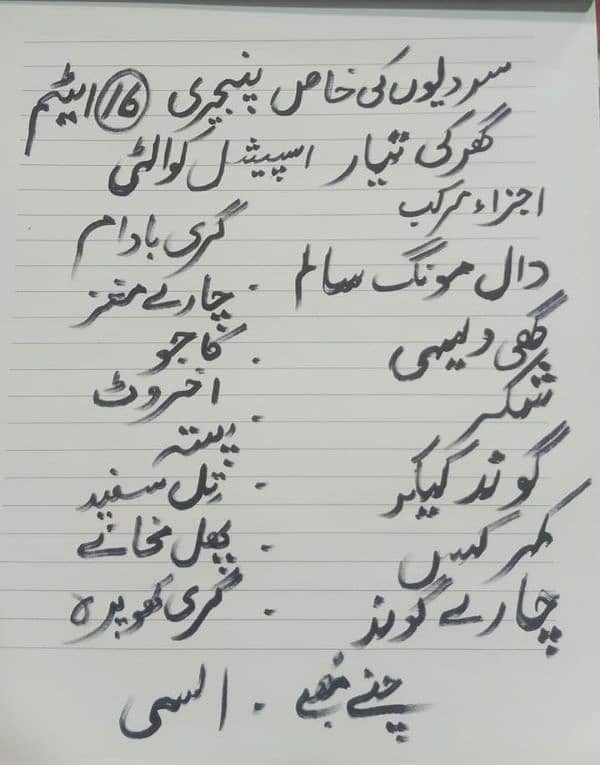 سردیوں کی خاص پنجیری 16 ایٹم
گھر کی تیار اسپیشل کوالٹی
اجزاء مرکب
گری بادام
دال مونگ سالم . چارے مغز
گھی دیسی . کاجو
شکر . اخروٹ
پستہ
گوند کیکر . تل سفید
کمر کس . پھل مخانے
چارے گوند . گری کھوپرہ
چنے بھنے . السی